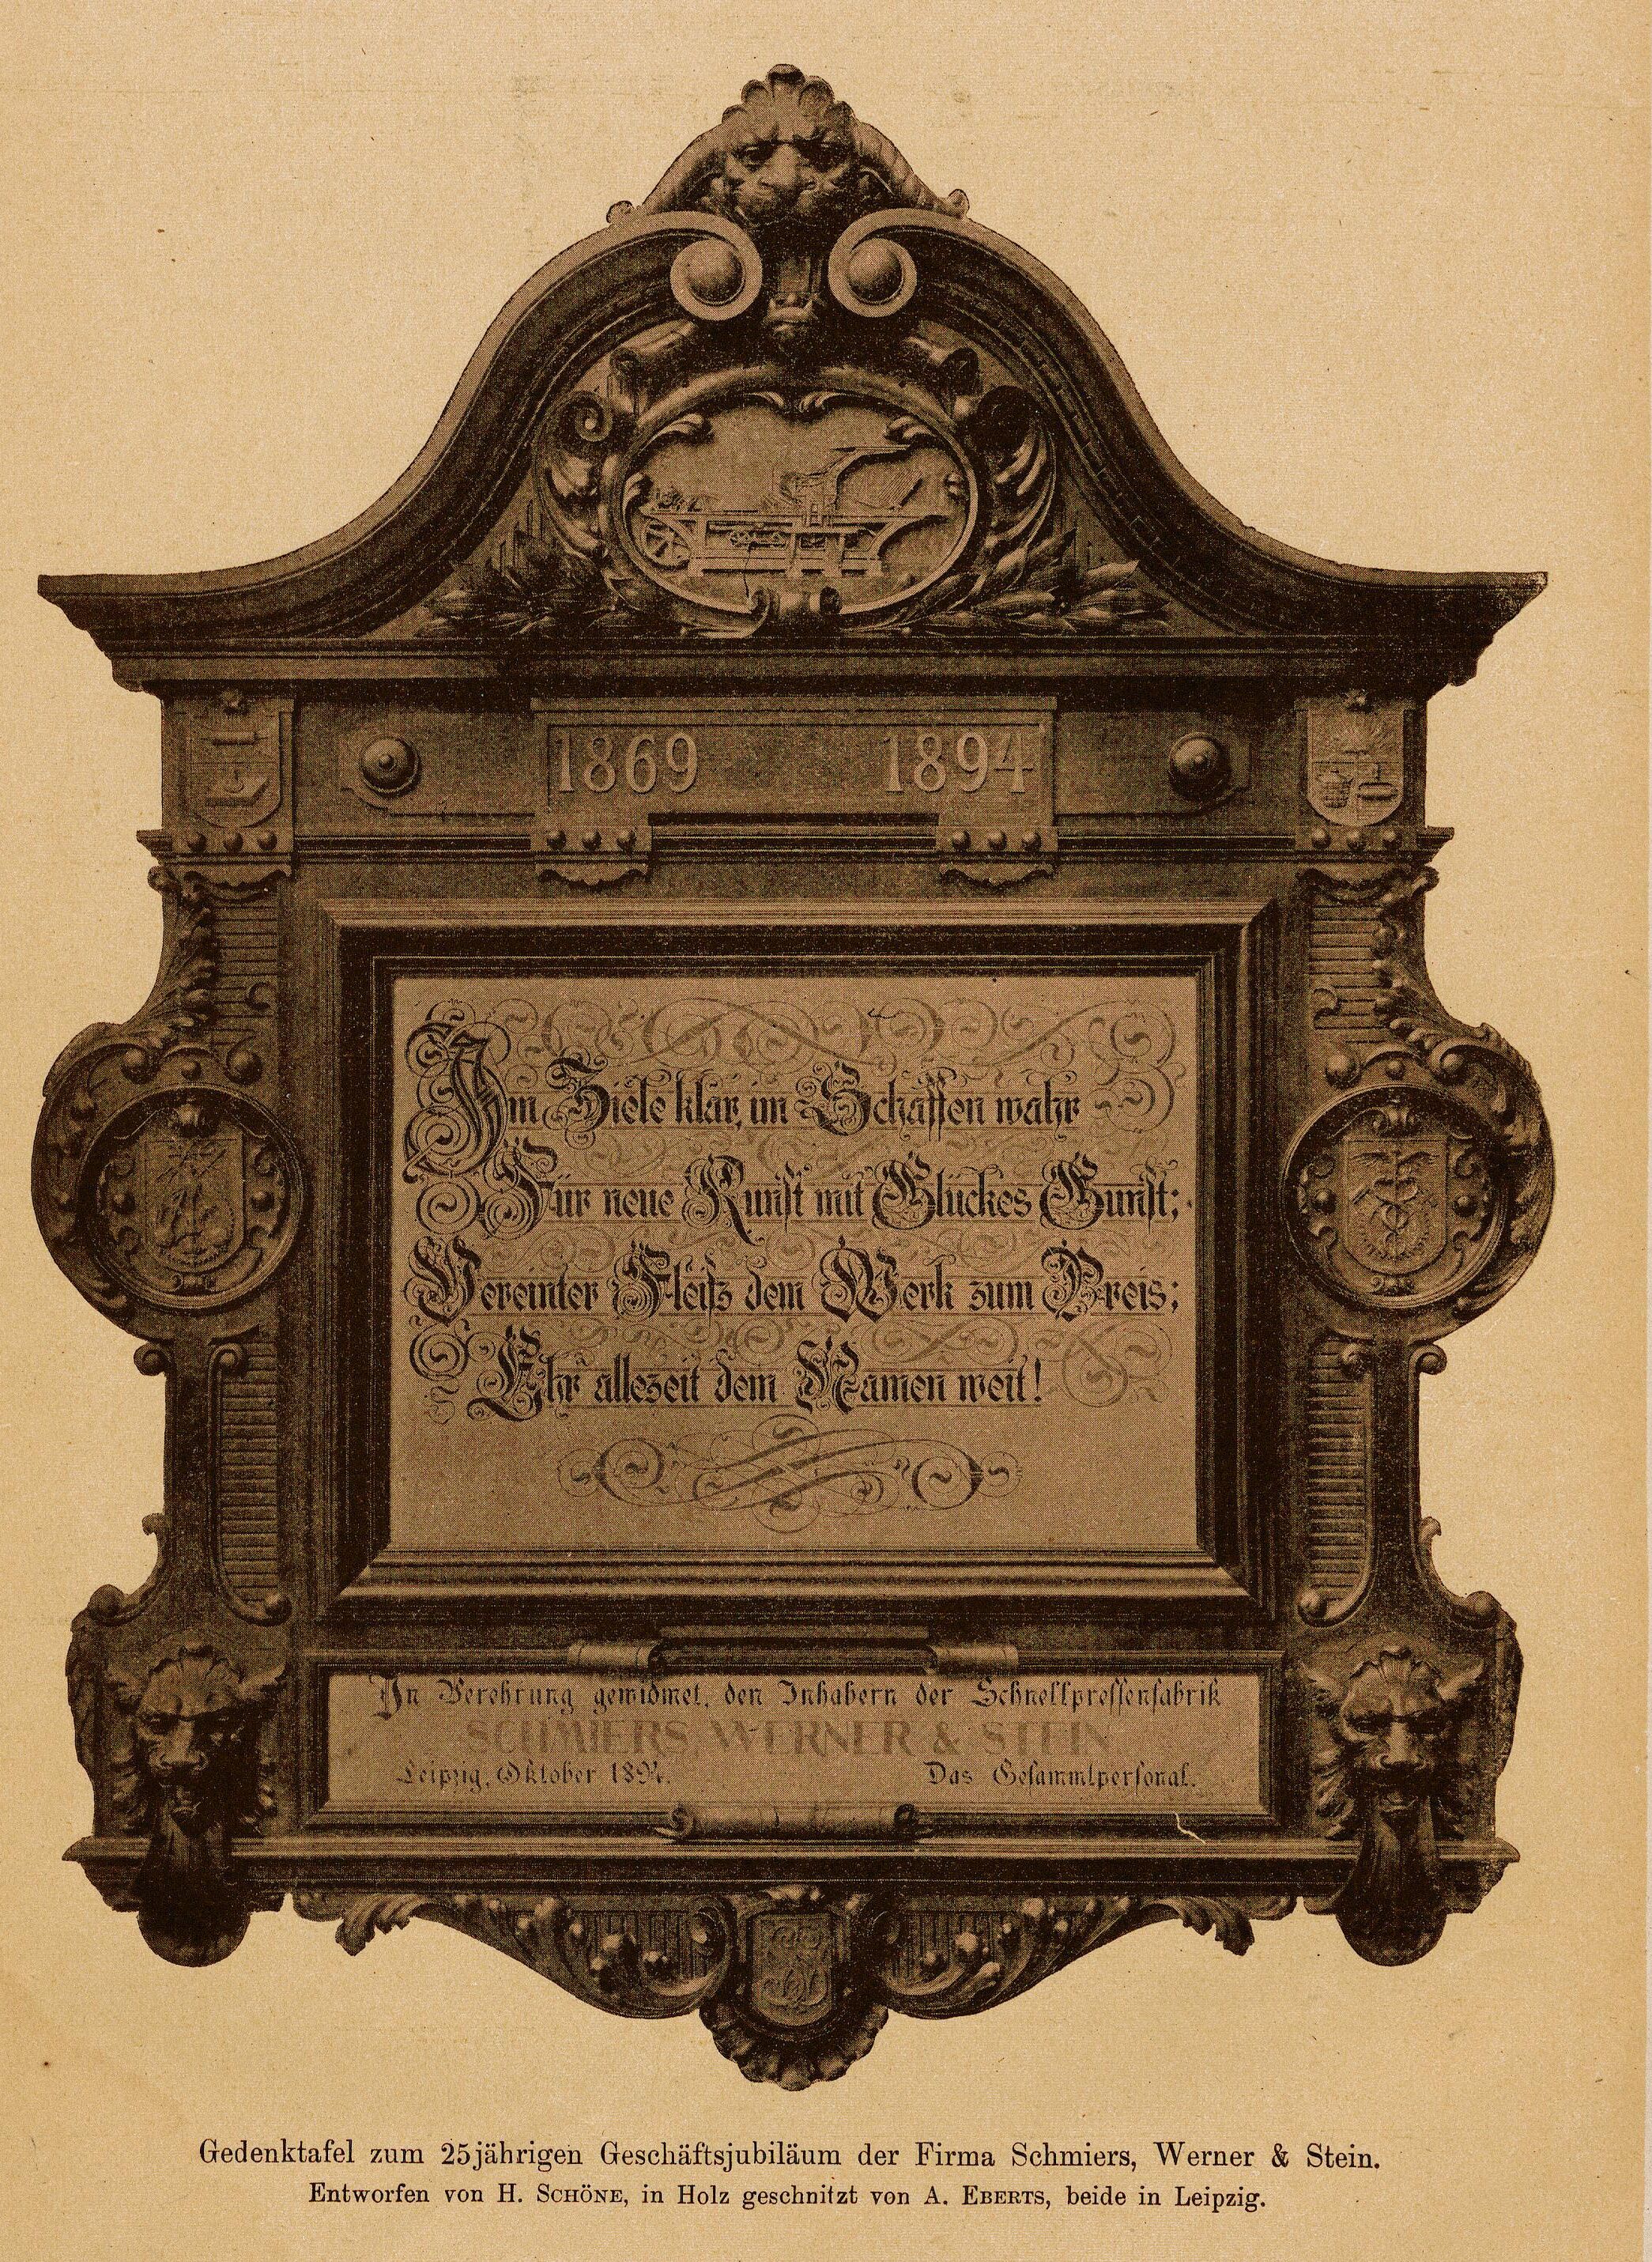 1869 1894
Im Ziele klar, im Schaffen wahr
Für neue Kunst mit Glückes Gunst;
Vereinter Fleiß dem Werk zum Preis;
Ehr allezeit dem Namen weit!
In Verehrung gewidmet, den Inhabern der Schnellpressenfabrik
SCHMIERS, WERNER & STEIN
Leipzig, Oktober 1894. Das Gesammtpersonal.
Gedenktafel zum 25jährigen Geschäftsjubiläum der Firma Schmiers, Werner & Stein.
Entworfen von H. SCHÖNE, in Holz geschnitzt von A. EBERTS, beide in Leipzig.